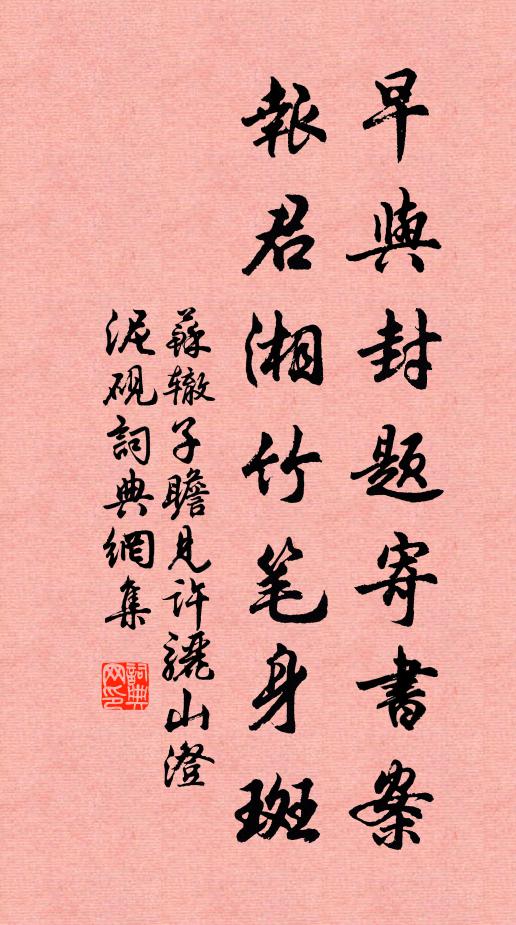 早與封題寄書案
報君湘竹笔身斑
蘇辙子瞻見许驪山澄
泥硯詞典網集
詞典网印